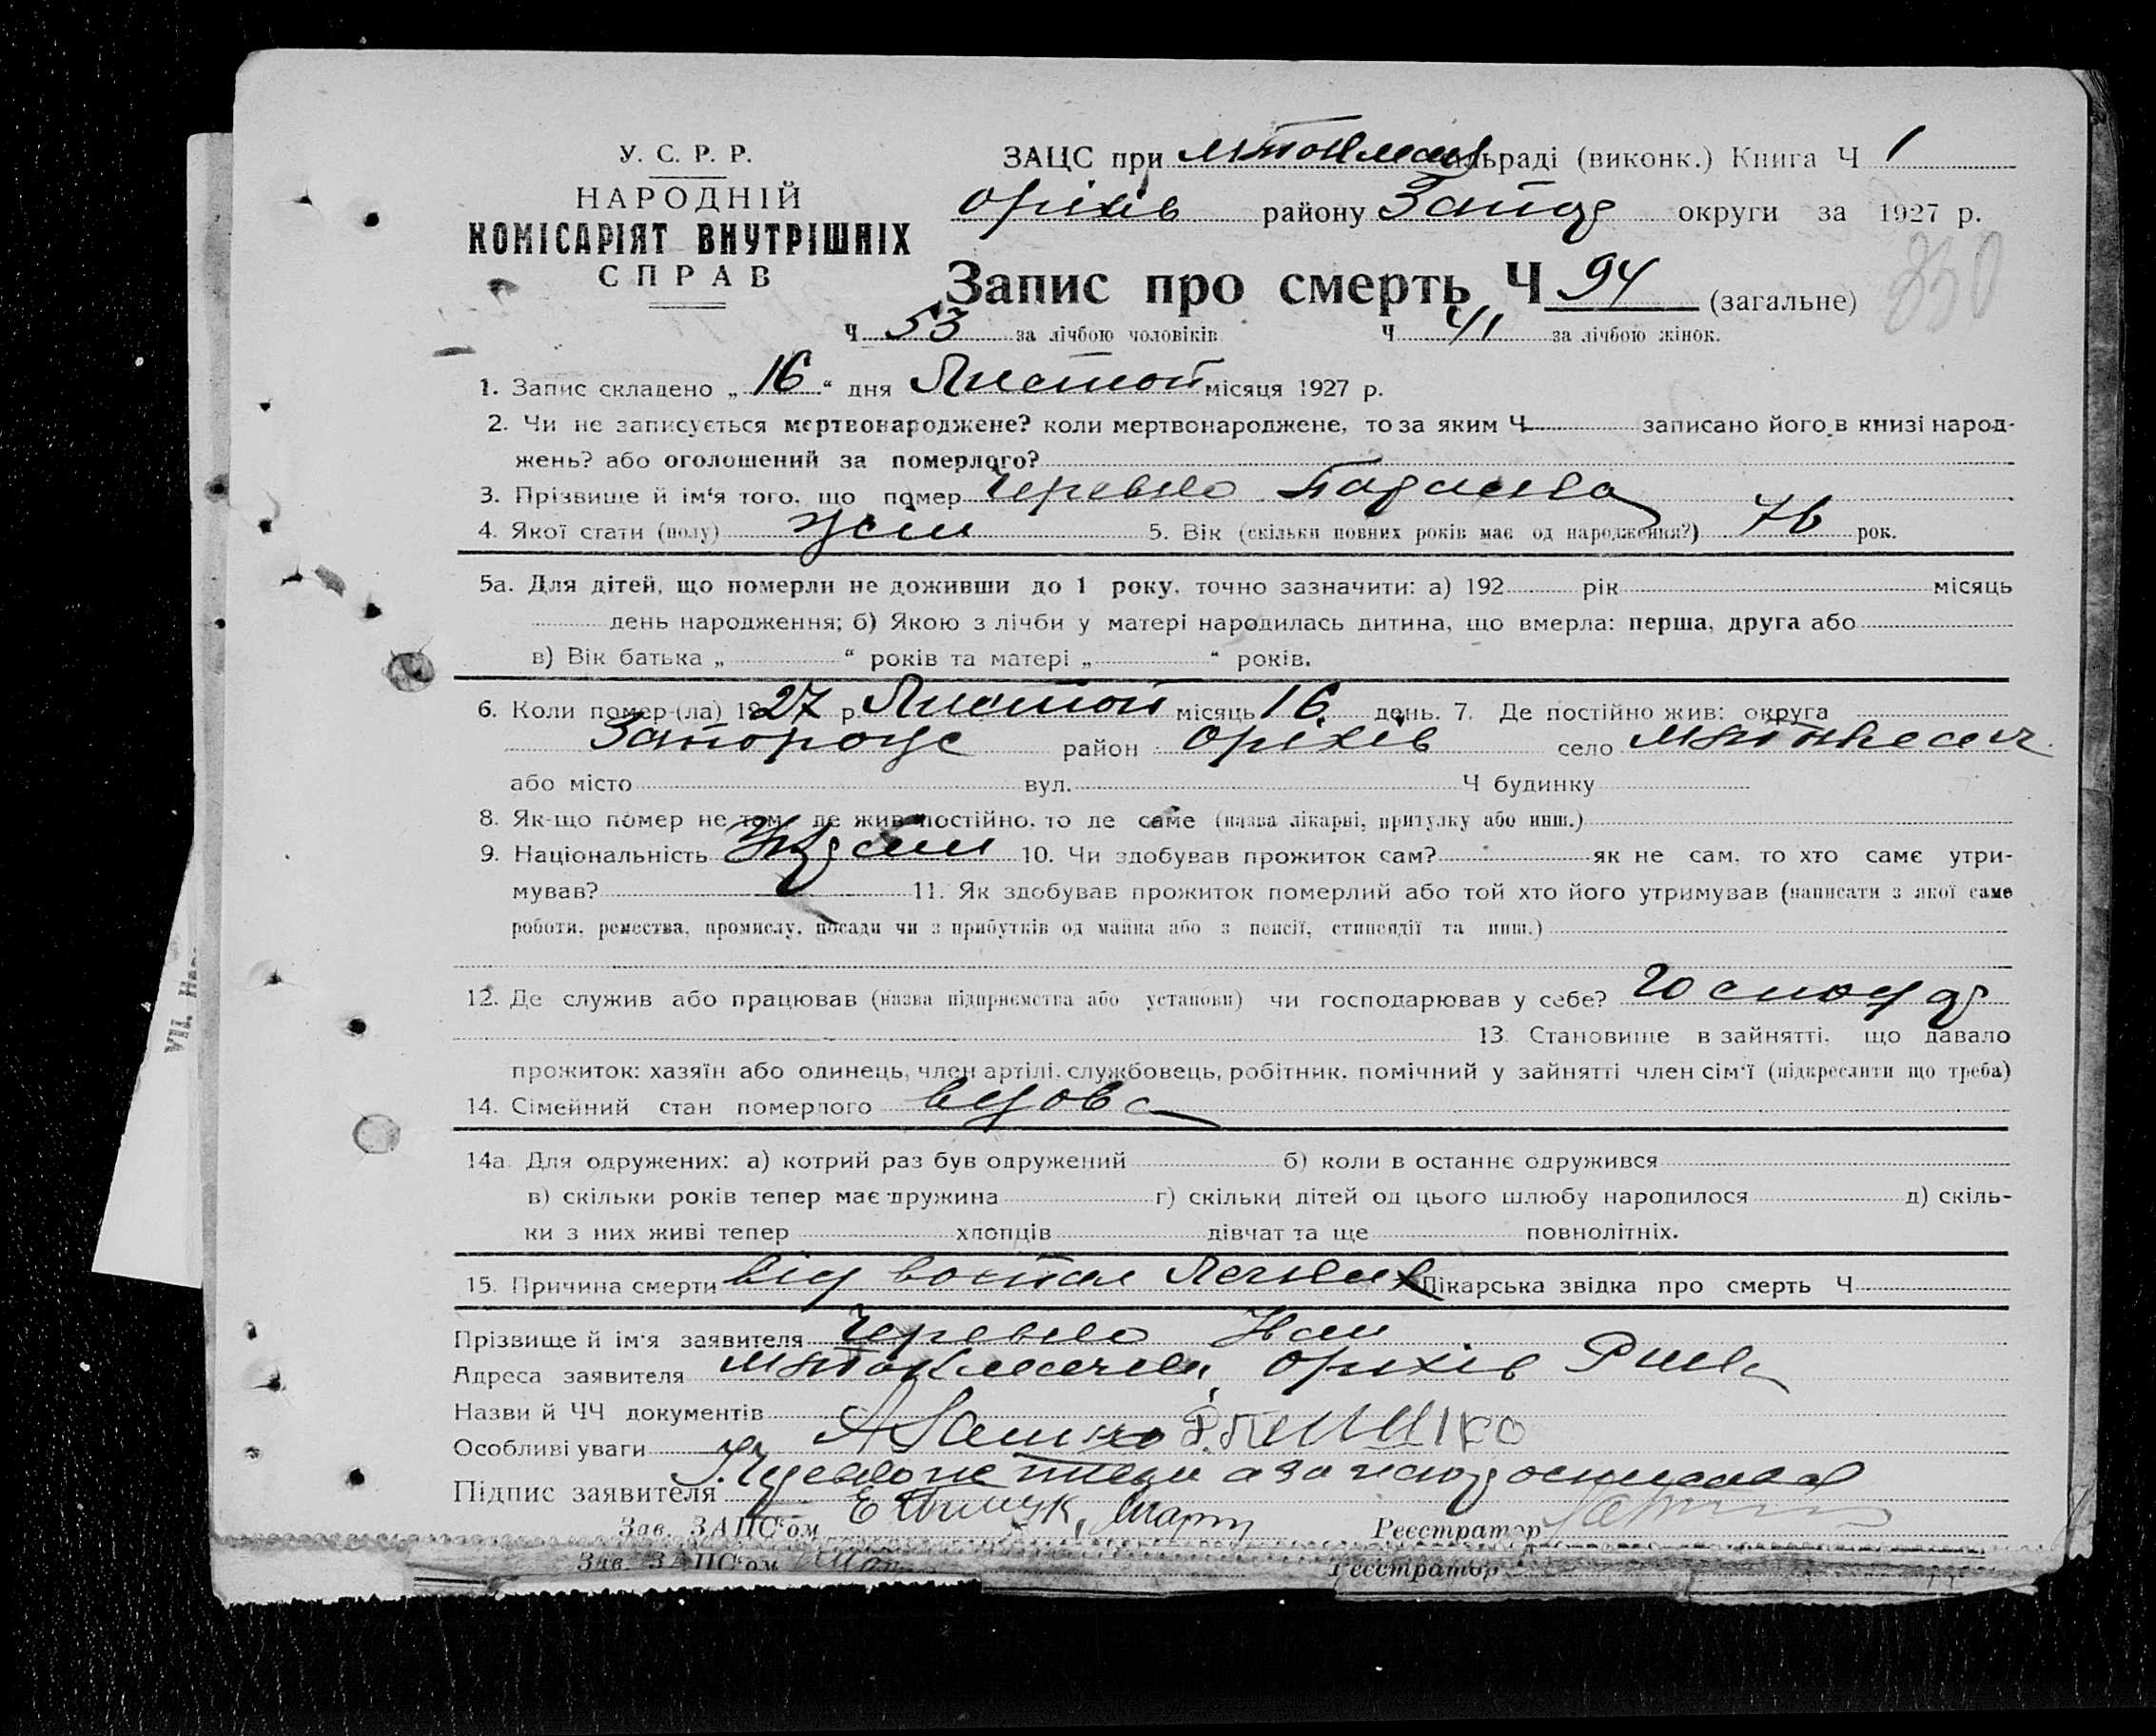 У. С. Р. Р.
НАРОДНІЙ
КОМІСАРІЯТ ВНУТРІШНІХ
СПРАВ
ЗАЦС при сільраді (виконк.) Книга Ч 1
Оріхів району Запор округи за 1927 р.
350
Запис про смерть Ч 94 (загальне)
Ч 53 за лічбою чоловіків Ч 41 за лічбою жінок.
1. Запис складено „16“ дня Листоп місяця 1927 р.
2. Чи не записується мертвонароджене? коли мертвонароджене, то за яким Ч записано його в книзі народ-
жень? або оголошений за померлого?
3. Прізвище й ім'я того, що помер Черевко
4. Якої стати (полу) жін 5. Вік (скільки повних років має од народження?) 76 рок.
5а. Для дітей, що померли не доживши до 1 року, точно зазначити: а) 192 рік місяць
день народження; б) Якою з лічби у матері народилась дитина, що вмерла: перша, друга або
в) Вік батька „ “ років та матері „ “ років.
6. Коли помер-(ла) 1927 р. Листоп місяць 16 день. 7. Де постійно жив: округа
Запорожс район Оріхів село
або місто вул. Ч будинку
8. Як-що помер не там, де жив постійно, то де саме (назва лікарні, притулку або инш.)
9. Національність 10. Чи здобував прожиток сам? як не сам, то хто саме утри-
мував? 11. Як здобував прожиток померлий або той хто його утримував (написати з якої саме
роботи, ремества, промислу, посади чи з прибутків од майна або з пенсії, стипендії та инш.)
12. Де служив або працював (назва підприємства або установи) чи господарював у себе? Господар
13. Становище в зайнятті, що давало
прожиток: хазяїн або одинець, член артілі, службовець, робітник, помічний у зайнятті член сім'ї (підкреслити що треба)
14. Сімейний стан померлого вдова
14а. Для одружених: а) котрий раз був одружений б) коли в останнє одружився
в) скільки років тепер має дружина г) скільки дітей од цього шлюбу народилося д) скіль-
ки з них живі тепер хлопців дівчат та ще повнолітніх.
15. Причина смерти від воспал Легких Лікарська звідка про смерть Ч
Прізвище й ім'я заявителя Черевко Іван
Адреса заявителя Оріхів
Назви й ЧЧ документів
Особливі уваги
Підпис заявителя
Зав. ЗАЦС'ом Реєстратор
Зав. ЗАЦС'ом Реєстратор